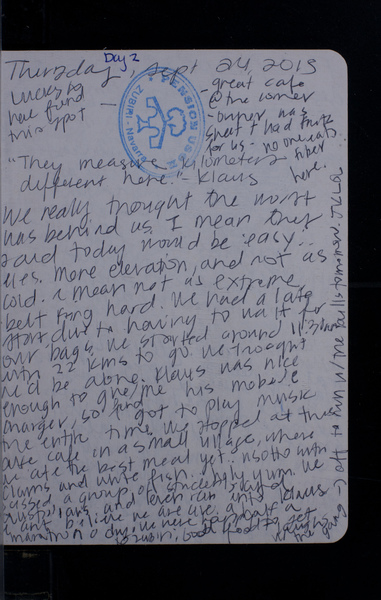 Day 2
Thursday, Sept 24, 2015
Lucky to
have found
this spot
- great cafe
@ the corner
- owner was
sweet & had
for us - no one
here.
PENSION USOA
ZUBIRI - NAVARRA
"They measure kilometers
different here." - Klaus
We really thought the worst
was behind us. I mean they
said today would be easy...
lies. More elevation, and not as
cold. I mean not as extreme
but hard. We had a late
start due to having to wait for
our bags. We started around 11:30am
with 22 kms to go. We thought
we'd be alone. Klaus was nice
enough to give me his mobile
charger, so I got to play music
the entire time. We stopped at this
cute cafe in a small village, where
we ate the best meal yet. risotto with
clams and white fish. Sincerely yum. We
passed a group of
Australians and even ran into Klaus
I can't believe we are
marathon a day. We were
Zubiri, good food
the gang → off to run w/ the bulls tomorrow.